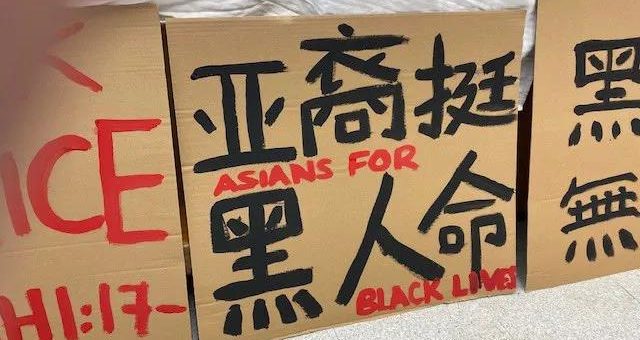 ICE
H1:17-
亚裔挺
ASIANS FOR
黑人命
BLACK LIVES
黑
無